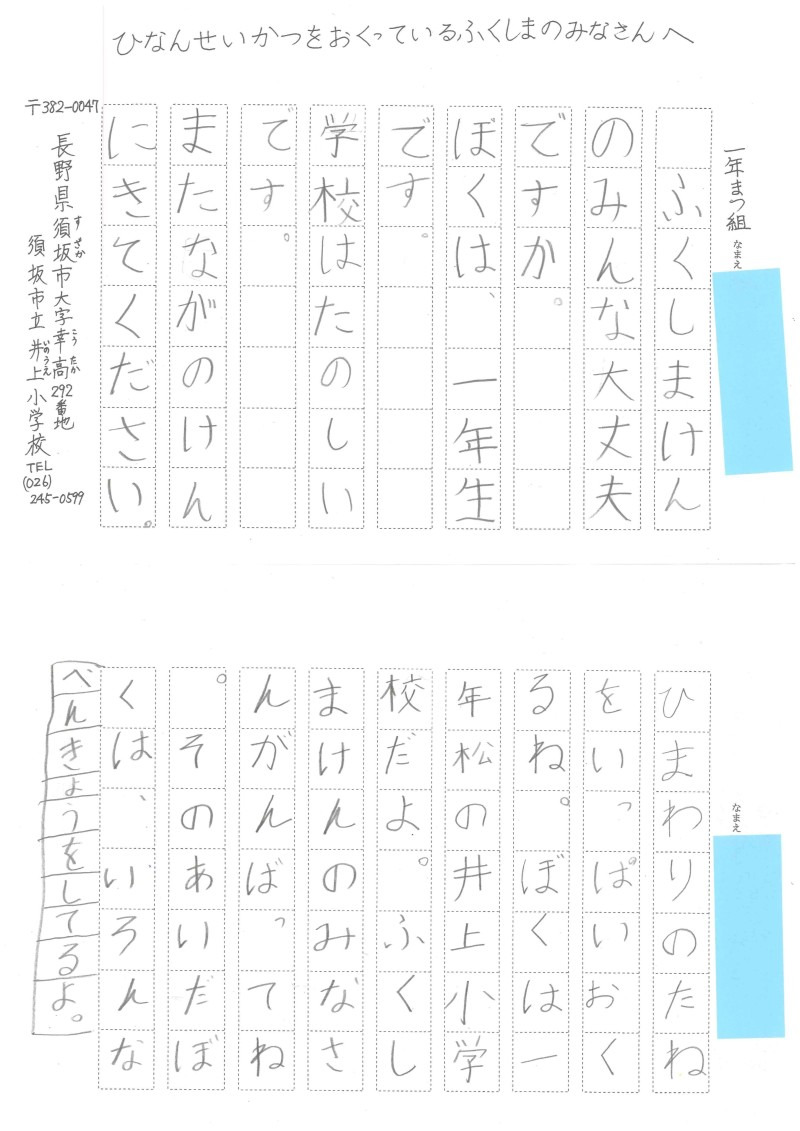 ひなんせいかつをおくっているふくしまのみなさんへ
一年まつ組
なまえ
ふくしまけん
のみんな大丈夫
ですか。
ぼくは、一年生
です。
学校はたのしい
です。
またながのけん
にきてください。
〒382-0047
長野県須坂市大字幸高292番地
すざか
こうたか
須坂市立井上小学校
いのうえ
TEL
(026)
245-0599
なまえ
ひまわりのたね
をいっぱいおく
るね。ぼくは一
年松の井上小学
校だよ。ふくし
まけんのみなさ
んがんばってね
。そのあいだぼ
くは、いろんな
べんきょうをしてるよ。